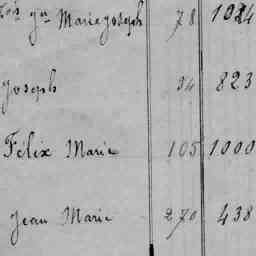 Marie Joseph 78 1024
Joseph 94 823
Félix Marie 105 1000
Jean Marie 270 438